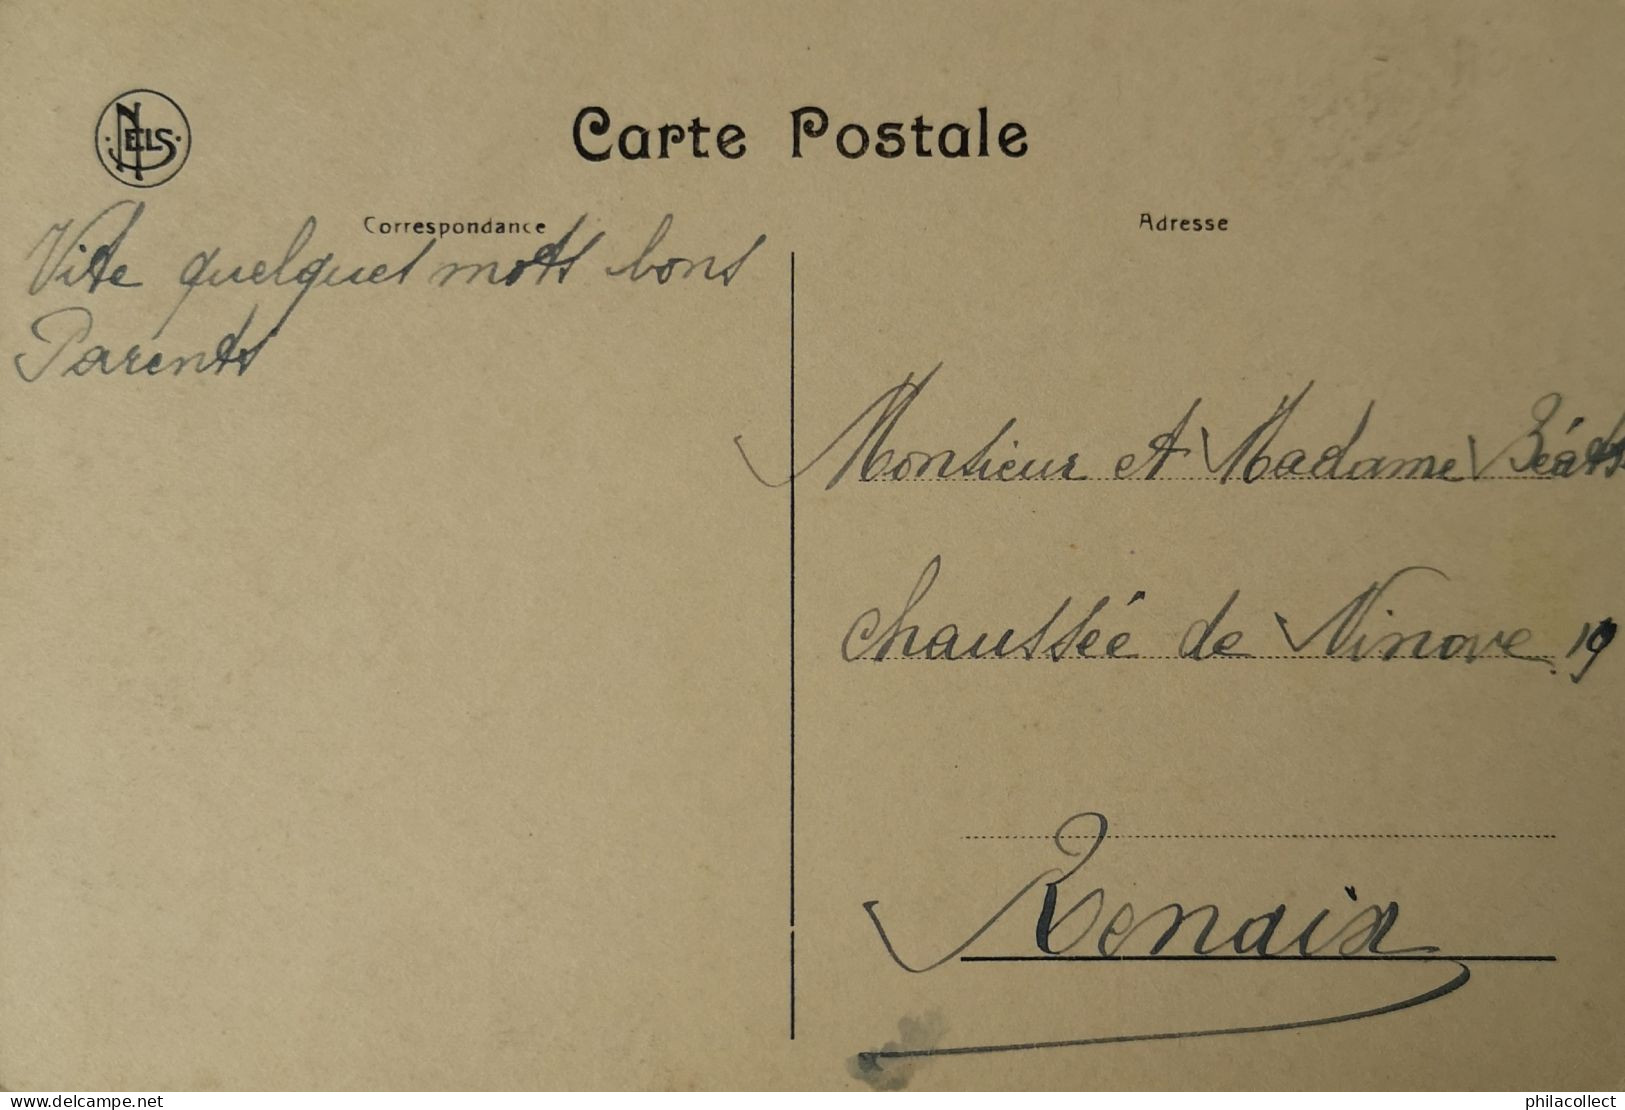 NELS
Carte Postale
Correspondance
Adresse
Vite quelques mots bons
Parents
Monsieur et Madame
chaussée de Ninove 19
Renaix
delcampe.net
philacollect